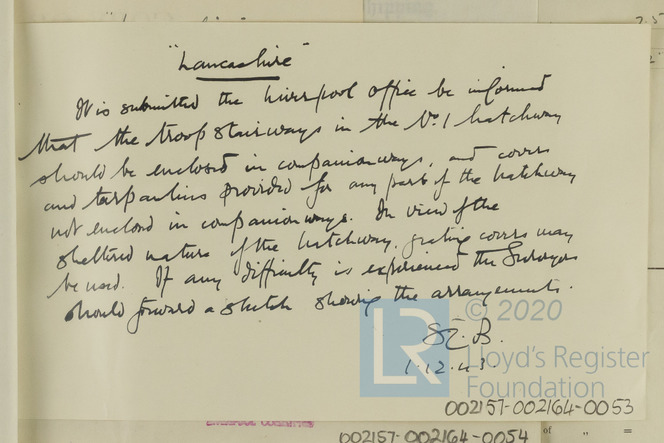 "Lancashire"
It is submitted the Liverpool Office be informed
that the troop stairways in the No. 1 hatchway
should be enclosed in companionways, and covers
and tarpaulins provided for any part of the hatchway
not enclosed in companionways. In view of the
sheltered nature of the hatchway, grating covers may
be used. If any difficulty is experienced the Surveyors
should forward a sketch showing the arrangements.
B.
1.12.43.
LR
© 2020
Lloyd's Register
Foundation
002157-002164-0053
002157-002164-0054
of " =